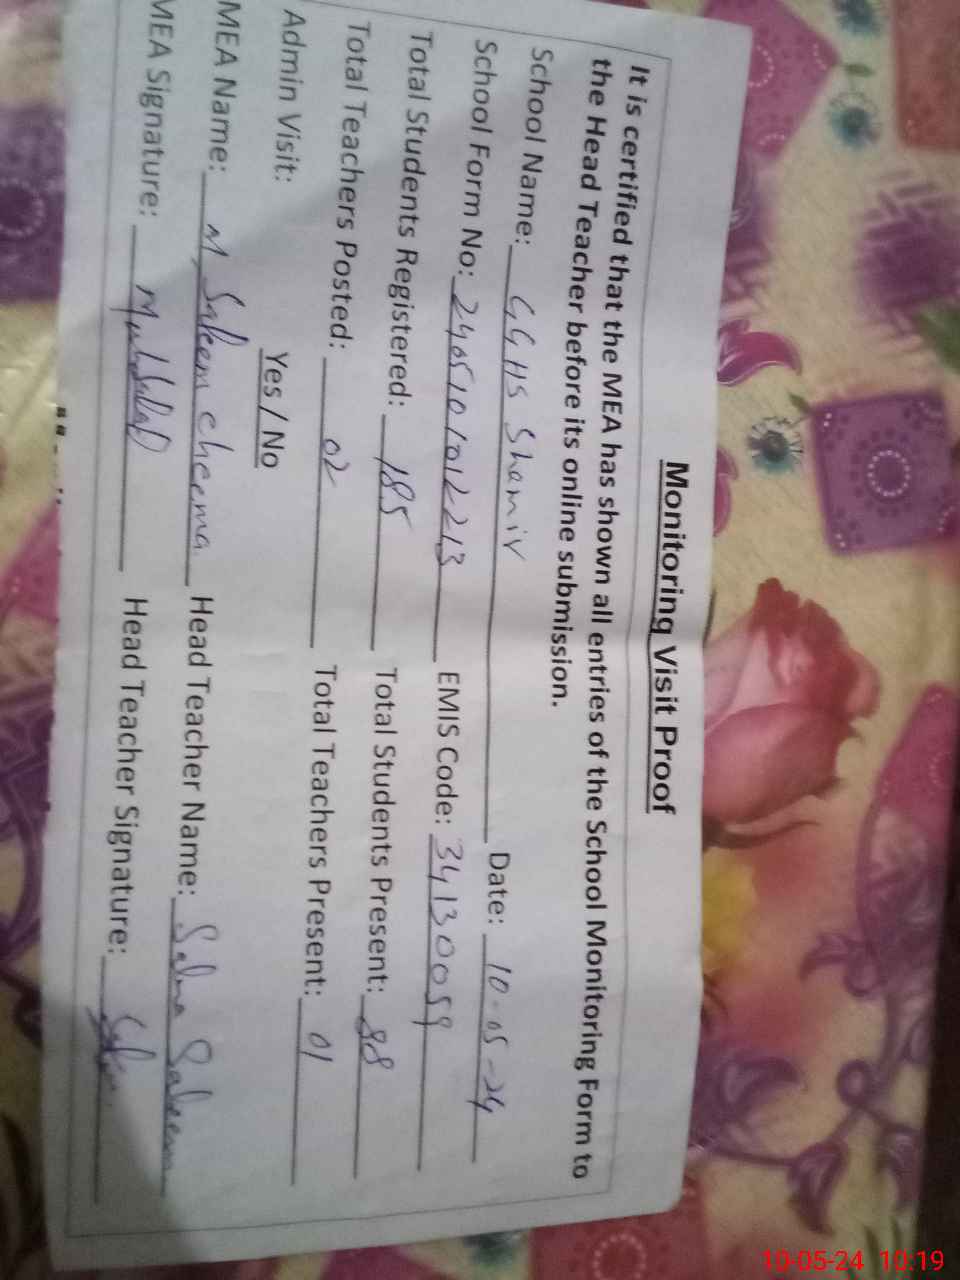 Monitoring Visit Proof
It is certified that the MEA has shown all entries of the School Monitoring Form to
the Head Teacher before its online submission.
School Name: GGHS Shamir Date: 10-05-24
School Form No: 2405101012213 EMIS Code: 34130059
Total Students Registered: 185 Total Students Present: 88
Total Teachers Posted: 02 Total Teachers Present: 01
Admin Visit: Yes / No
MEA Name: M Saleem cheema Head Teacher Name: Salma Saleem
MEA Signature: Head Teacher Signature:
10-05-24 10:19